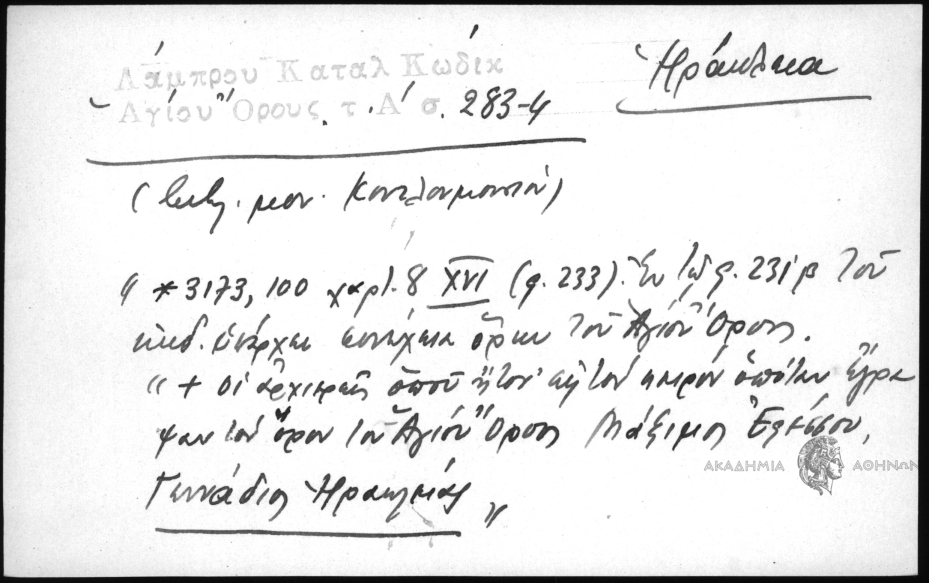 Λάμπρου Καταλ Κώδικ
Ἁγίου Ὄρους τ. Α' σ. 283-4
Ἡράκλεια
(βιβλ. μον. Κουτλουμουσίου)
" * 3173, 100 χαρτ. 8 XVI (φ. 233). Ἐν τῷ φ. 231β τοῦ
κώδ. ὑπάρχει συνέχεια ὅρων τοῦ Ἁγίου Ὄρους.
" + οἱ ἀρχιερεῖς ὁποῦ ἦτον εἰς τὸν καιρὸν ὁπόταν ἔγρα
ψαν τὸν ὅρον τοῦ Ἁγίου Ὄρους Μάξιμος Ἐφέσσου,
Γεννάδιος Ἡρακλείας "
ΑΚΑΔΗΜΙΑ ΑΘΗΝΩΝ